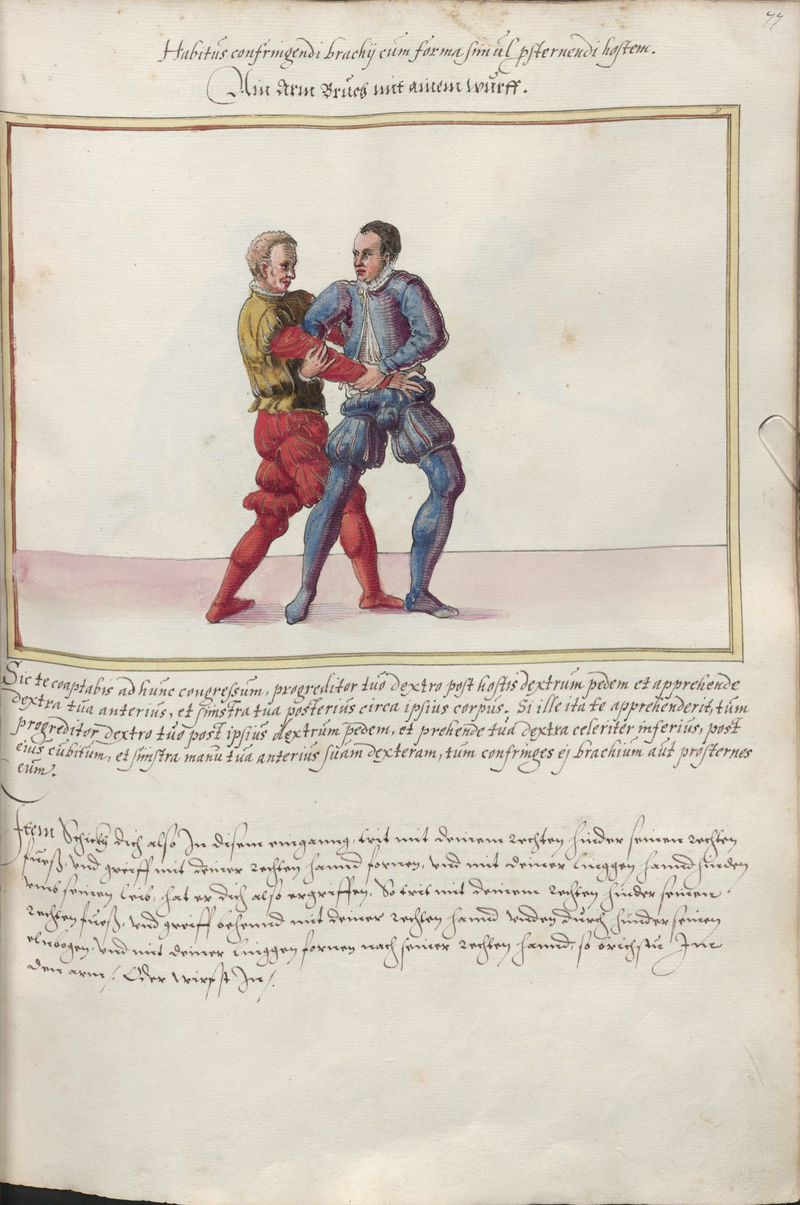 77
Habitus confringendi brachij cum forma simul psternendi hostem.
Ain Arm Bruch mit ainem wurff.
Sic te coaptabis ad hunc congressum, progreditor tuo dextro post hostis dextrum pedem et apprehende
dextra tua anterius, et sinistra tua posterius circa ipsius corpus. Si ille ita te apprehenderit, tum
progreditor dextro tuo post ipsius dextrum pedem, et prehende tua dextra celeriter inferius, post
eius cubitum, et sinistra manu tua anterius suam dexteram, tum confringes ej brachium aut prosternes
eum.
Item Schickh dich also In disem einganng, trit mit deinem rechten hinder seinen rechten
fueß, vnd greiff mit deiner rechten hannd fornen, vnd mit deiner linggen hannd hinden
vmb seinen leib, hat er dich also ergriffen, So trit mit deinem rechten hinder seinen
rechten fueß, vnd greiff behennd mit deiner rechten hannd vnden durch hinder seinen
elnbogen, vnd mit deiner linggen fornen nach seiner rechten hannd, so brichstu Im
den arm /. Oder wirfst In /.